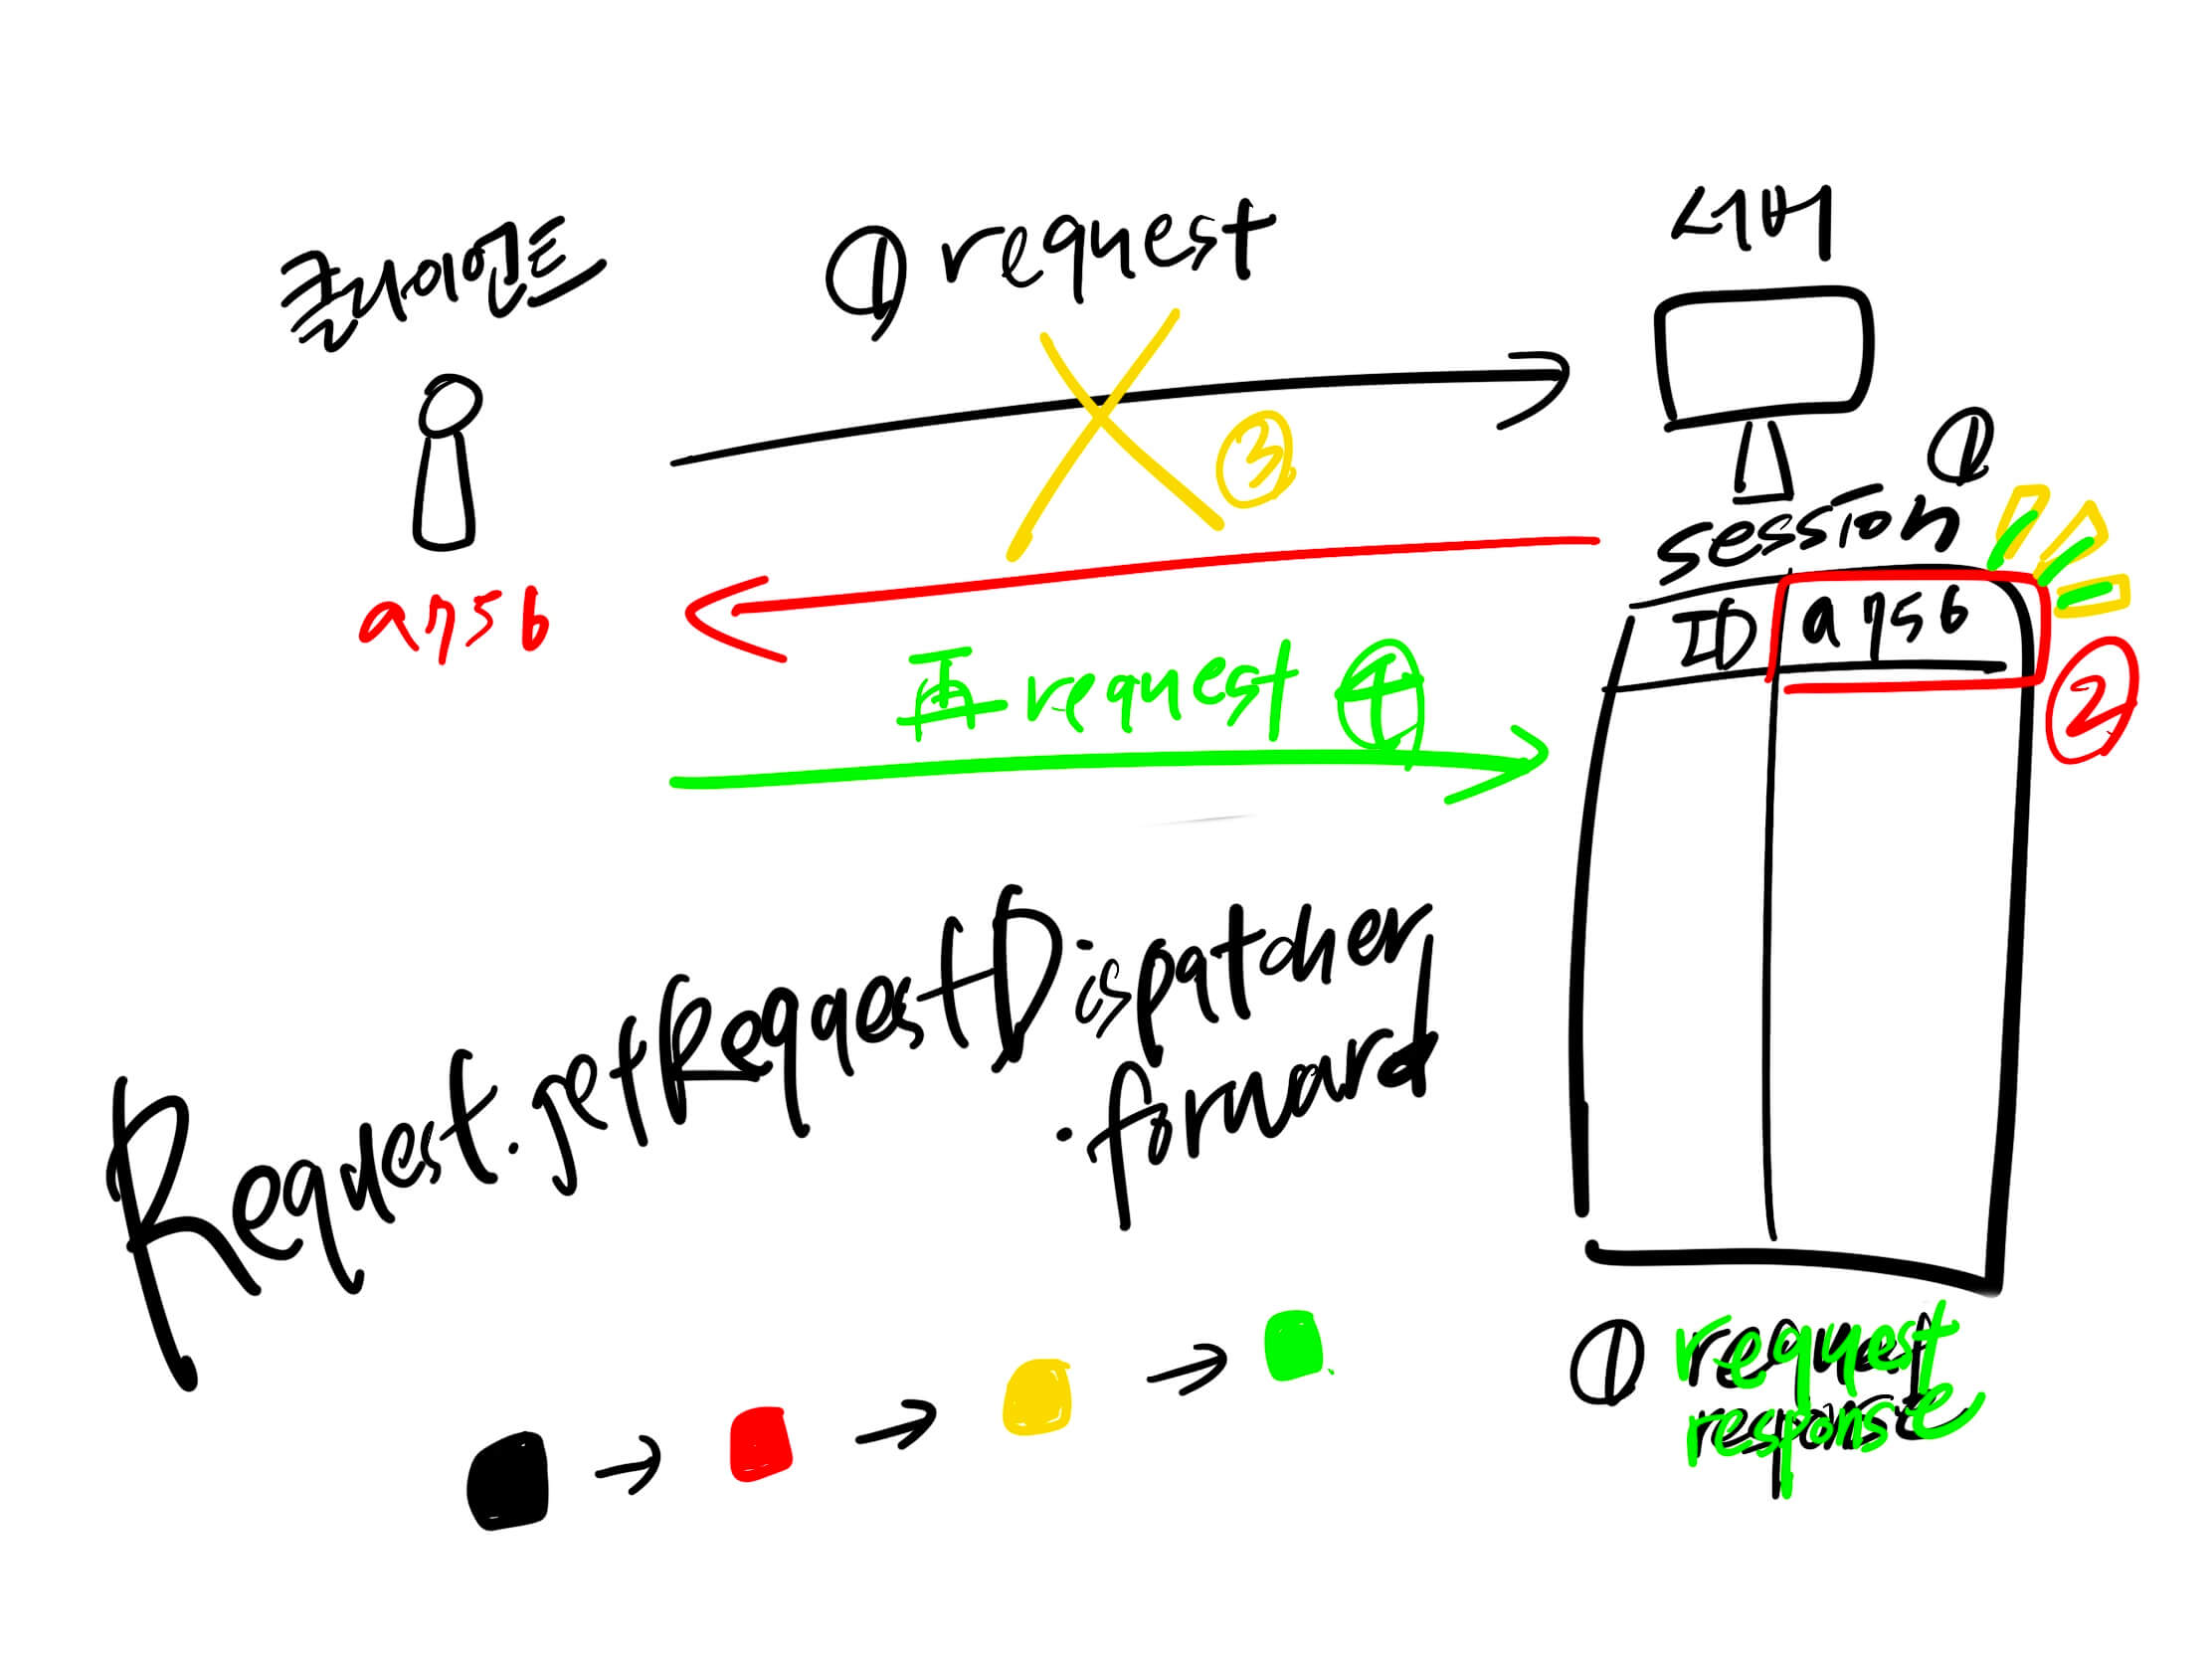 서버
① request
클라이언트
③
①
session
ID a756
a756
再 request ④
②
Request.getRequestDispatcher
.forward
① request
response